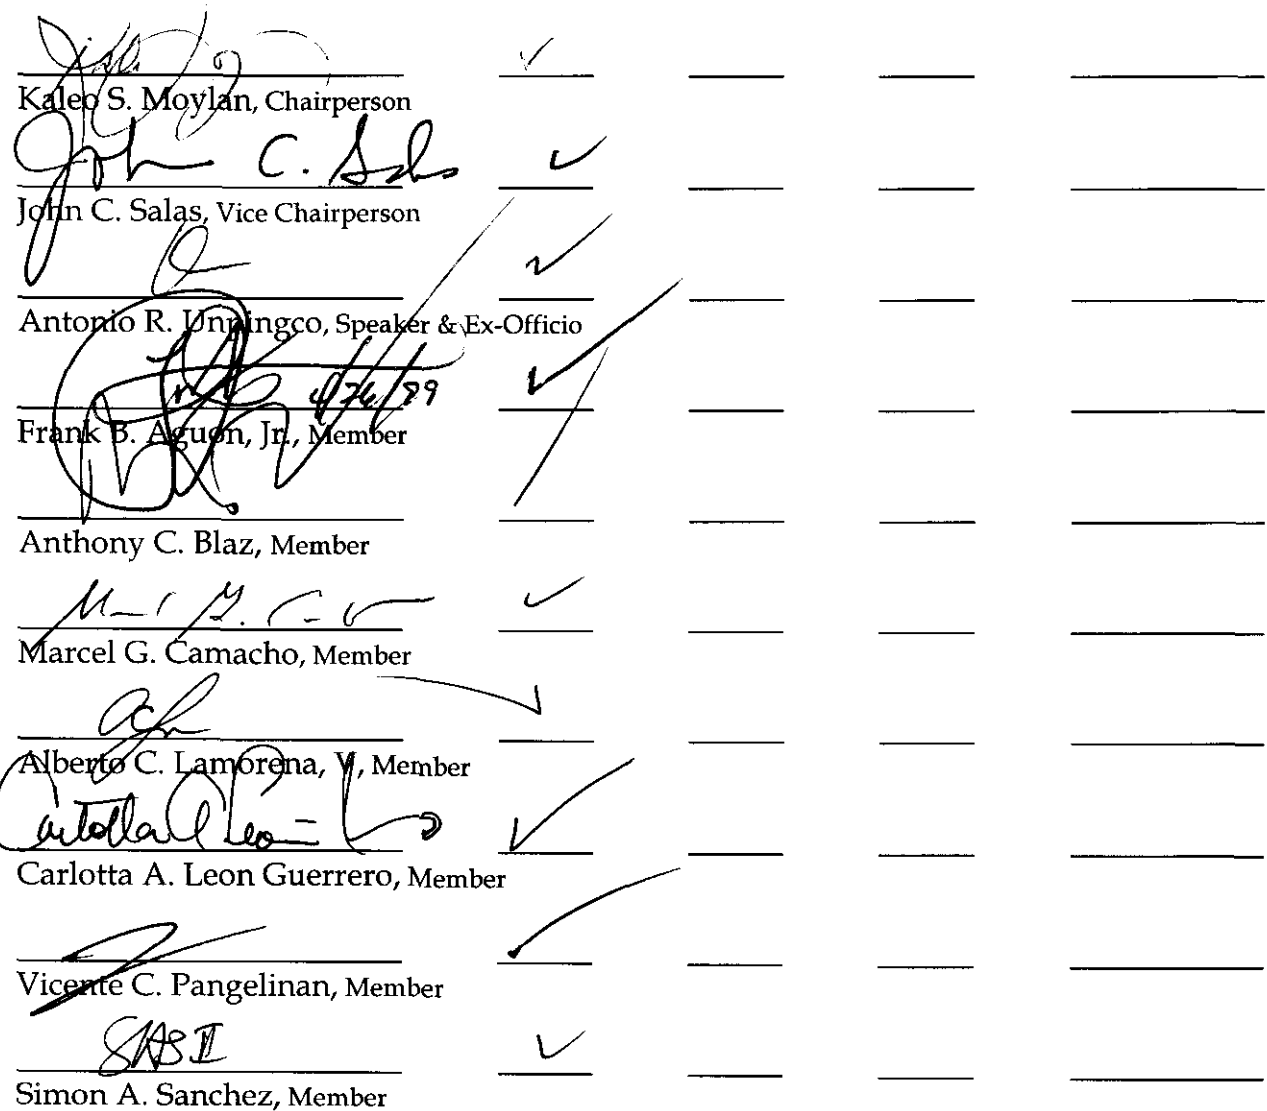 Kaleo S. Moylan, Chairperson
John C. Salas
John C. Salas, Vice Chairperson
Antonio R. Unpingco, Speaker & Ex-Officio
Frank B. Aguon, Jr., Member
Anthony C. Blaz, Member
Marcel G. Camacho, Member
Alberto C. Lamorena, V, Member
Carlotta A Leon
Carlotta A. Leon Guerrero, Member
Vicente C. Pangelinan, Member
SAS II
Simon A. Sanchez, Member